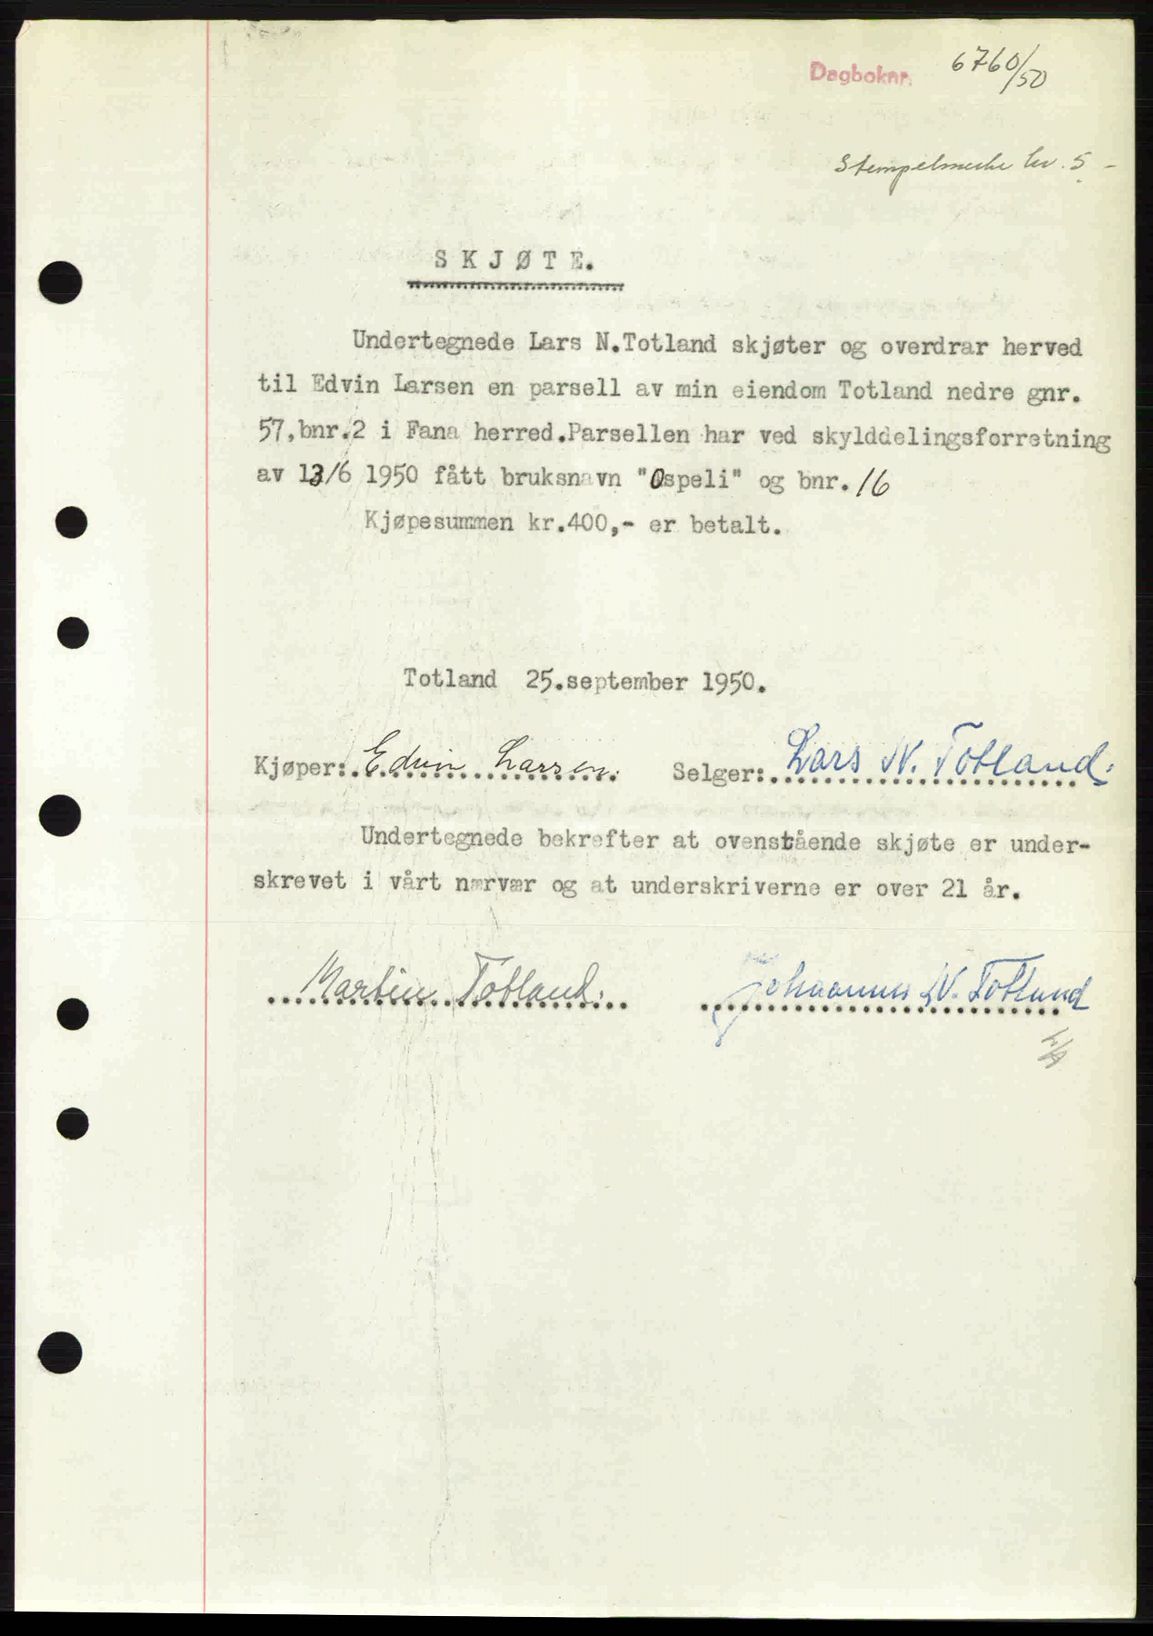 Dagboknr. 6760/50
Stempelmerke kr. 5 -
SKJØTE.
Undertegnede Lars N.Totland skjøter og overdrar herved
til Edvin Larsen en parsell av min eiendom Totland nedre gnr.
57,bnr.2 i Fana herred.Parsellen har ved skylddelingsforretning
av 13/6 1950 fått bruksnavn "Ospeli" og bnr. 16
Kjøpesummen kr.400,- er betalt.
Totland 25.september 1950.
Kjøper: Edvin Larsen. Selger: Lars N. Totland.
Undertegnede bekrefter at ovenstående skjøte er under-
skrevet i vårt nærvær og at underskriverne er over 21 år.
Martin Totland. Johannes N. Totland